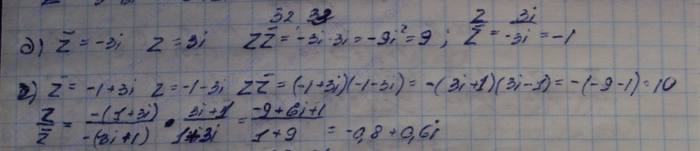 д) z̄ = -3i   z = 3i   z z̄ = -3i·3i = -9i² = 9 ;   z/z̄ = 3i/-3i = -1
z̄ = -1+3i   z = -1-3i   z z̄ = (-1+3i)(-1-3i) = -(3i+1)(3i-1) = -(-9-1) = 10
z/z̄ = -(1+3i)/-(3i+1) · 3i+1/1+3i = -9+6i+1/1+9 = -0,8+0,6i